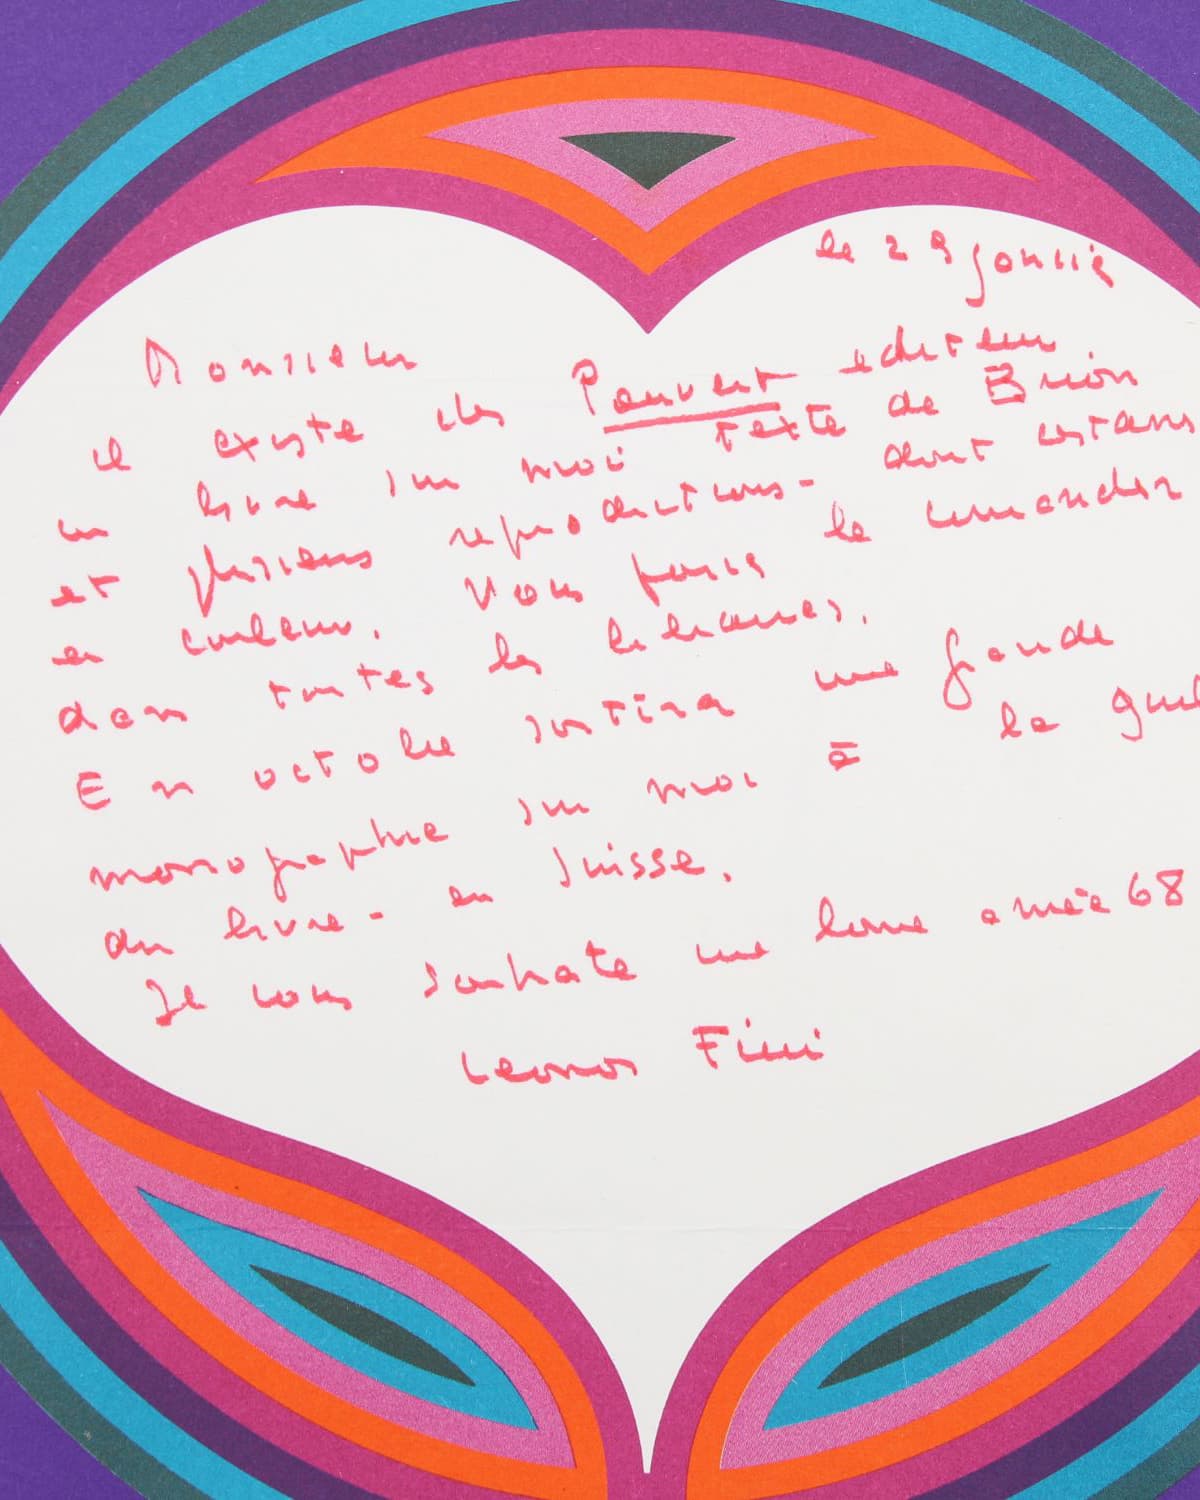 le 29 janvier
Monsieur
il existe chez Pauvert editeur
un livre sur moi texte de Brion
et plusieurs reproductions - dont certans
en couleurs. Vous pouvez le commander
dans toutes les librairies.
En octobre sortira une grande
monographie sur moi à la Guil
du livre - en Suisse.
Je vous souhate une bonne année 68
Leonor Fini